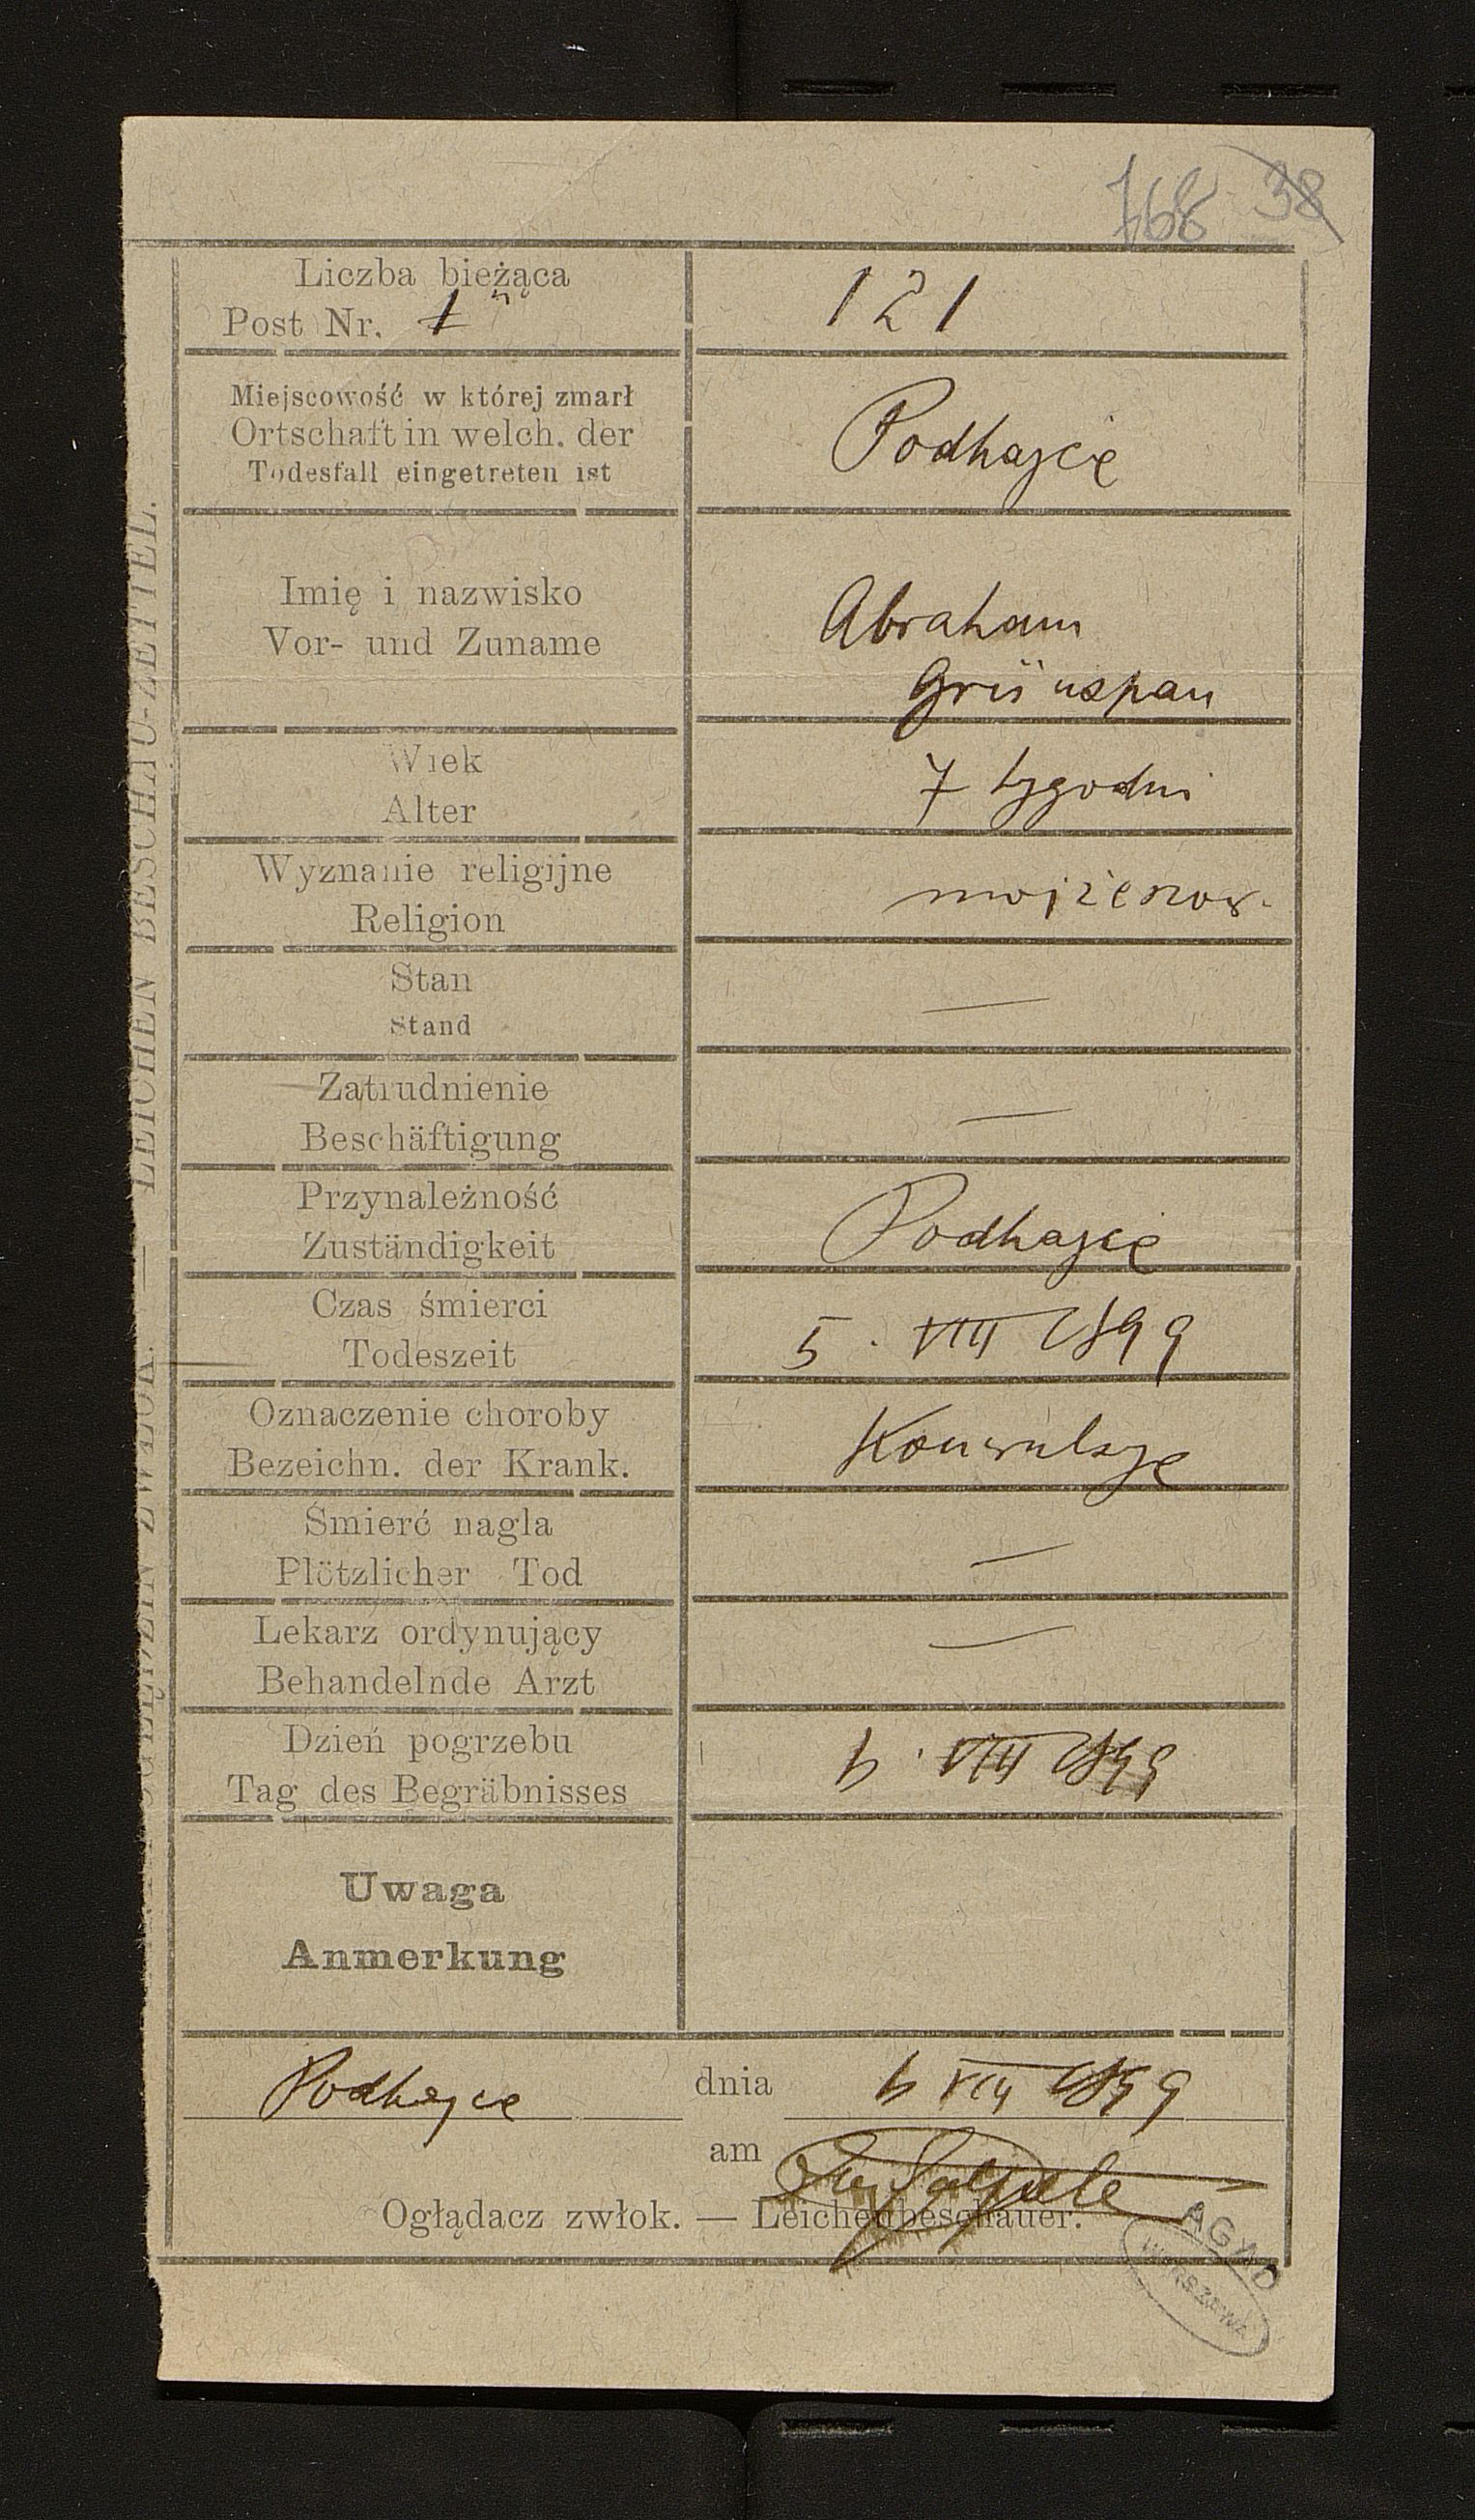 768 38
Liczba bieżąca
Post Nr. 1
121
Miejscowość w której zmarł
Ortschaft in welch. der
Todesfall eingetreten ist
Podhajce
Imię i nazwisko
Vor- und Zuname
Abraham
Grünspan
Wiek
Alter
7 tygodni
Wyznanie religijne
Religion
mojżeszow.
Stan
Stand
—
Zatrudnienie
Beschäftigung
—
Przynależność
Zuständigkeit
Podhajce
Czas śmierci
Todeszeit
5. VIII 1899
Oznaczenie choroby
Bezeichn. der Krank.
Konwulsje
Śmierć nagla
Plötzlicher Tod
—
Lekarz ordynujący
Behandelnde Arzt
—
Dzień pogrzebu
Tag des Begräbnisses
6. VIII 1899
Uwaga
Anmerkung
Podhajce dnia 6 VIII 1899
am
Oglądacz zwłok. — Leichenbeschauer.
AGAD
WARSZAWA
OGLĘDZIN ZWŁOK. — LEICHEN BESCHAU-ZETTEL.